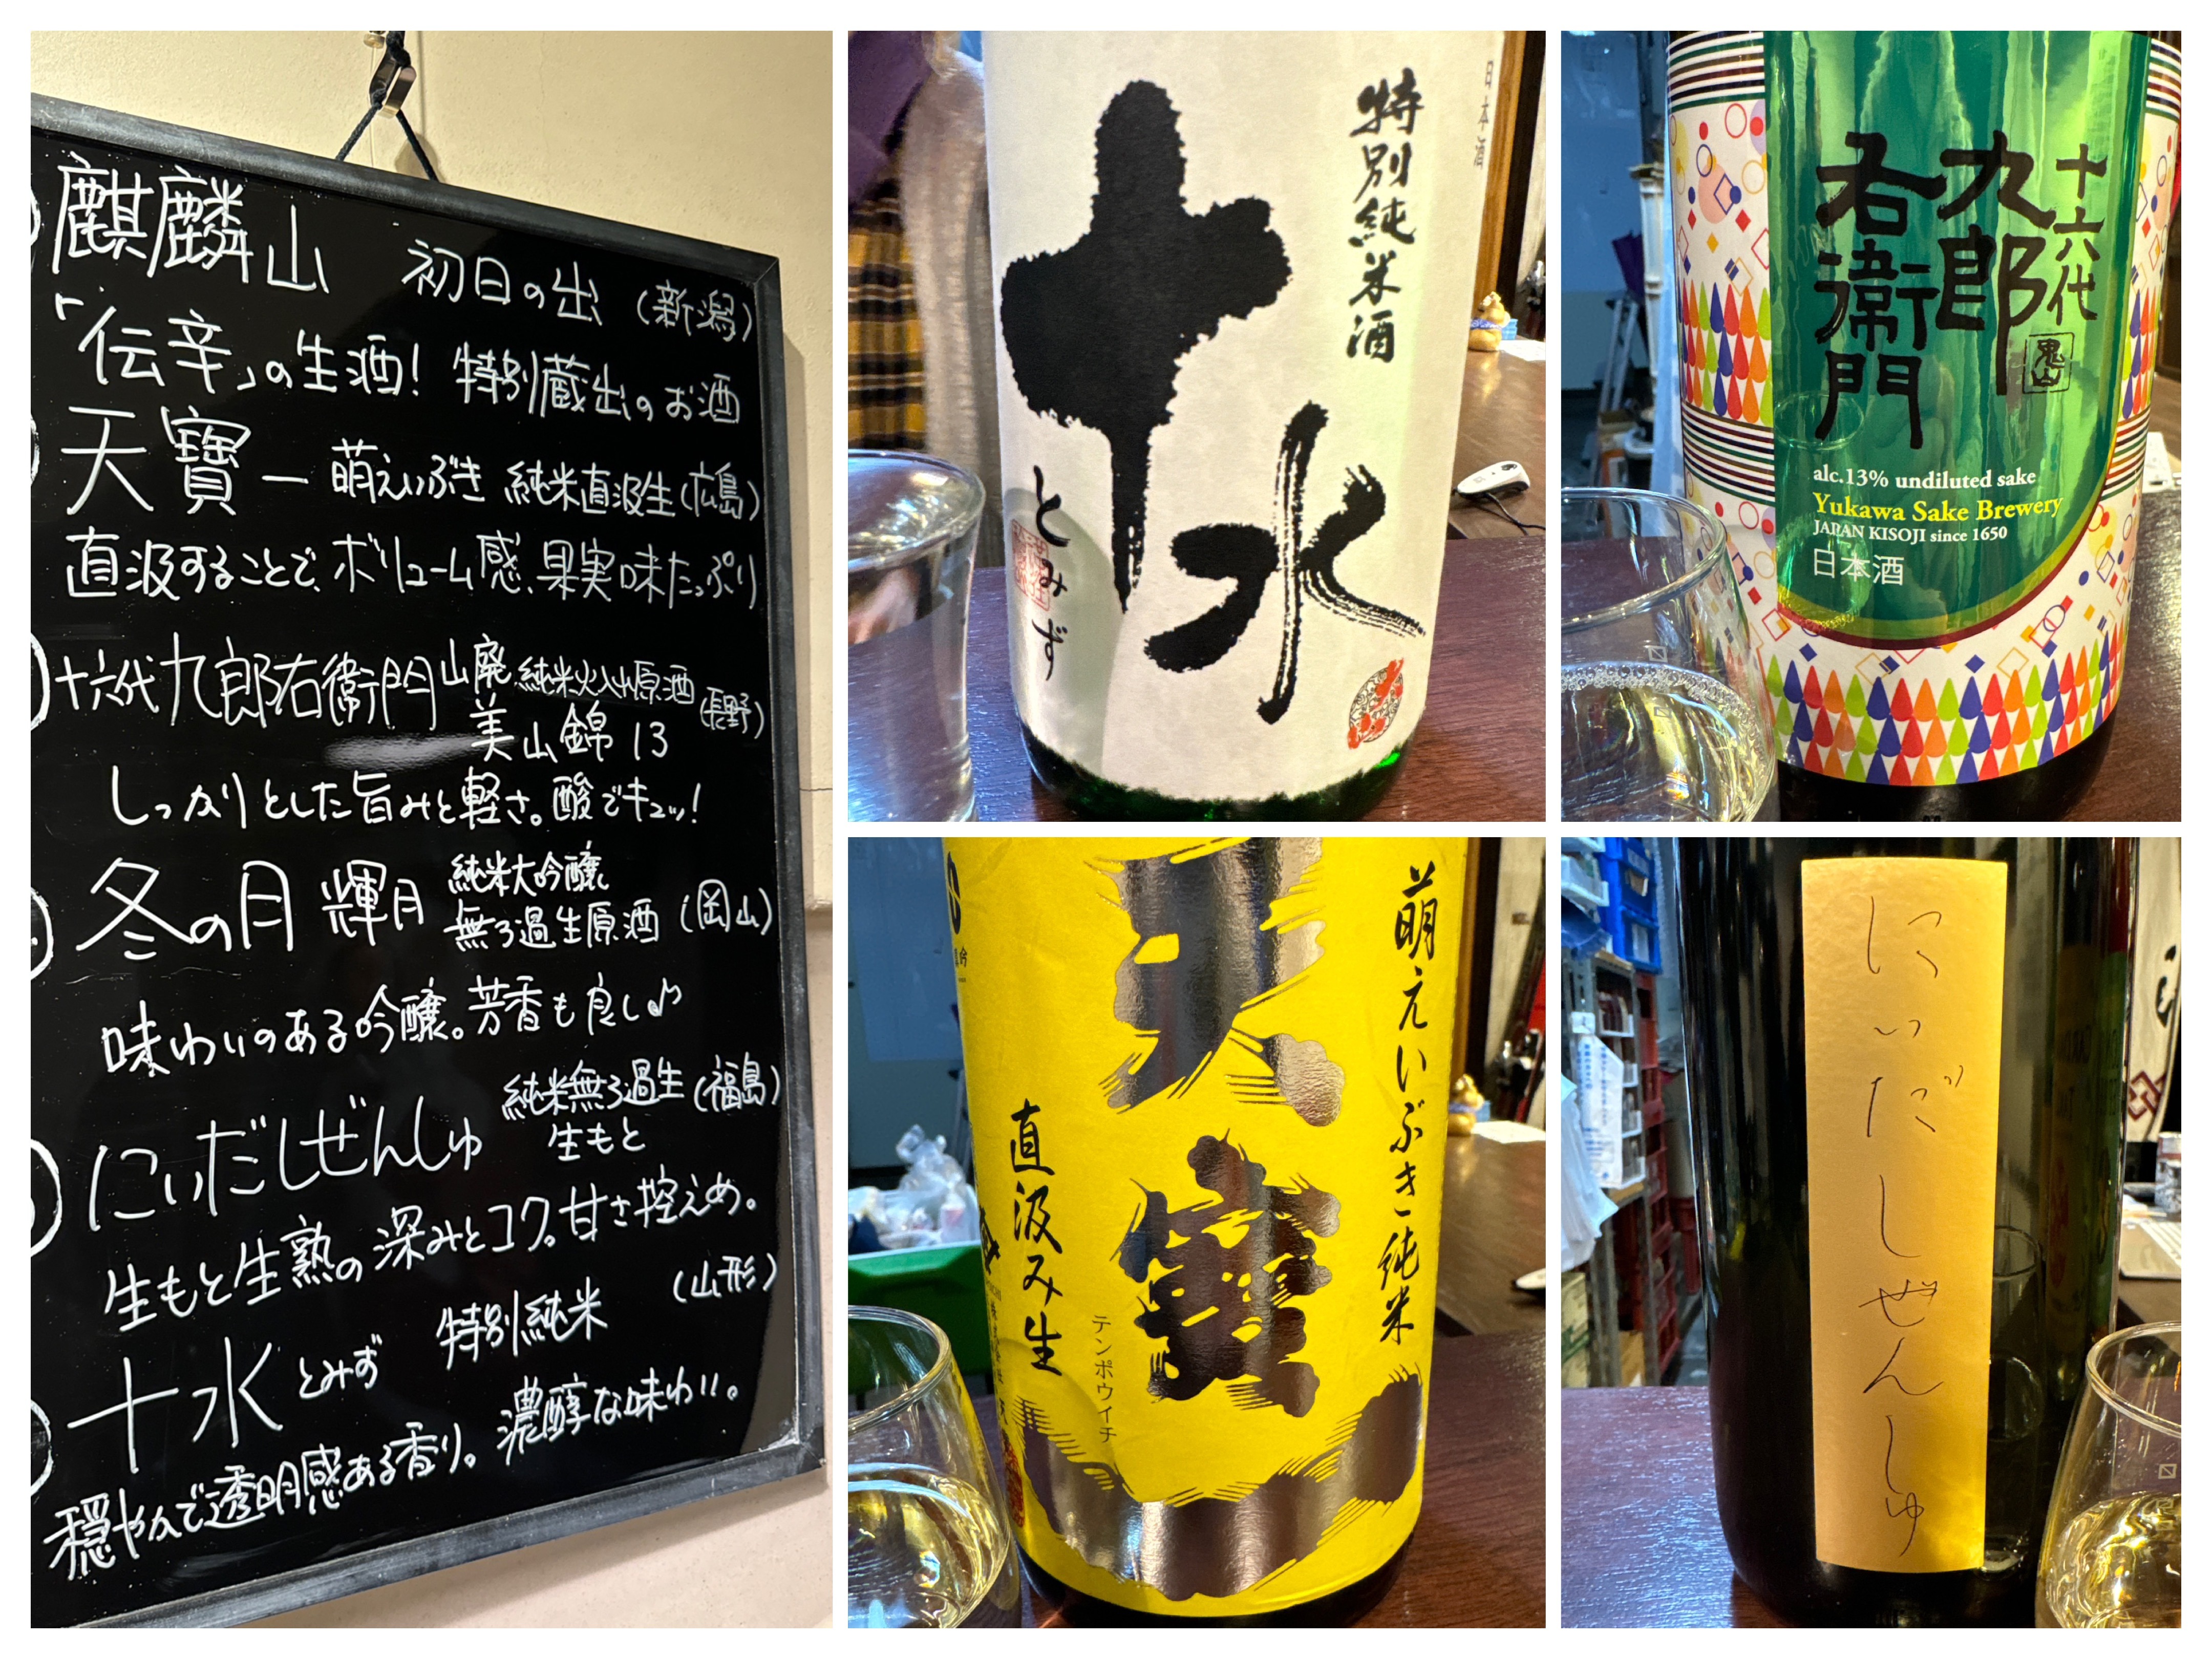 麒麟山 初日の出 (新潟)
「伝辛」の生酒! 特別蔵出のお酒
天寶一 萌えいぶき 純米直汲生 (広島)
直汲することで、ボリューム感、果実味たっぷり
十六代 九郎右衛門 山廃 純米火入れ原酒 (長野)
美山錦 13
しっかりとした旨みと軽さ。酸でキュッ!
冬の月 輝月 純米大吟醸
無ろ過生原酒 (岡山)
味わいのある吟醸。芳香も良し♪
にいだしぜんしゅ 純米無ろ過生 (福島)
生もと
生もと生熟の深みとコク。甘さ控えめ。
十水 とみず 特別純米 (山形)
穏やかで透明感ある香り。濃醇な味わい。
日本酒
特別純米酒
十水
とみず
十六代
九郎
右衛門
alc.13% undiluted sake
Yukawa Sake Brewery
JAPAN KISOJI since 1650
日本酒
萌えいぶき純米
天寶
テンポウイチ
直汲み生
にいだしぜんしゅ